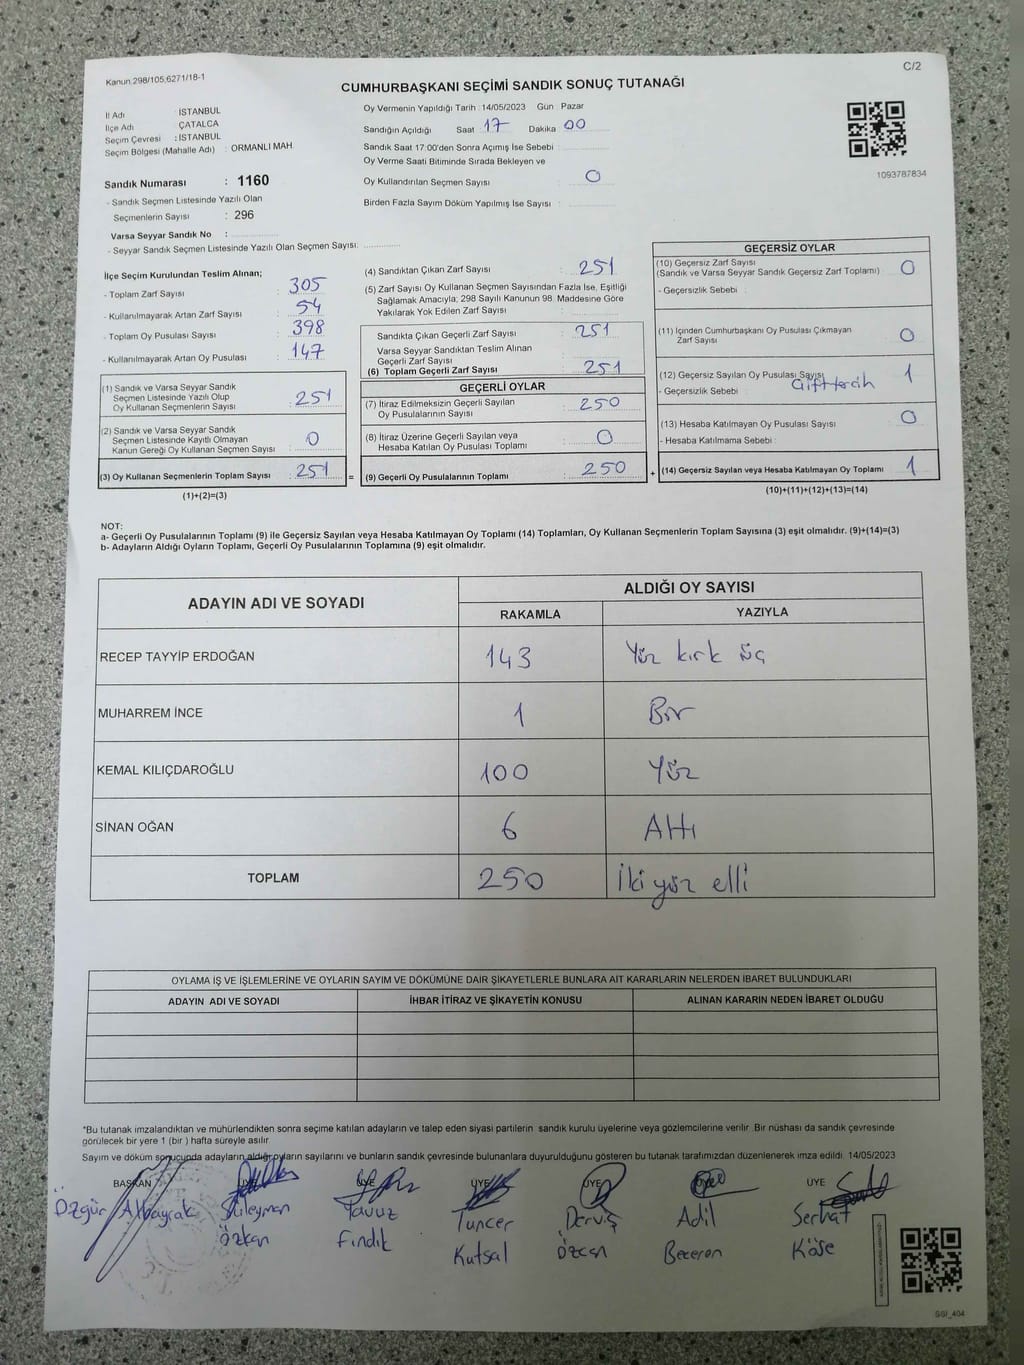 Kanun 298/105;6271/18-1
C/2
CUMHURBAŞKANI SEÇİMİ SANDIK SONUÇ TUTANAĞI
İl Adı : İSTANBUL
İlçe Adı : ÇATALCA
Seçim Çevresi : İSTANBUL
Seçim Bölgesi (Mahalle Adı) : ORMANLI MAH
Sandık Numarası : 1160
- Sandık Seçmen Listesinde Yazılı Olan
Seçmenlerin Sayısı : 296
Varsa Seyyar Sandık No :
- Seyyar Sandık Seçmen Listesinde Yazılı Olan Seçmen Sayısı:
Oy Vermenin Yapıldığı Tarih : 14/05/2023 Gün : Pazar
Sandığın Açıldığı Saat : 17 Dakika : 00
Sandık Saat 17:00'den Sonra Açımış İse Sebebi :
Oy Verme Saati Bitiminde Sırada Bekleyen ve
Oy Kullandırılan Seçmen Sayısı : 0
Birden Fazla Sayım Döküm Yapılmış İse Sayısı :
1093787834
İlçe Seçim Kurulundan Teslim Alınan;
- Toplam Zarf Sayısı : 305
- Kullanılmayarak Artan Zarf Sayısı : 54
- Toplam Oy Pusulası Sayısı : 398
- Kullanılmayarak Artan Oy Pusulası : 147
(1) Sandık ve Varsa Seyyar Sandık
Seçmen Listesinde Yazılı Olup
Oy Kullanan Seçmenlerin Sayısı : 251
(2) Sandık ve Varsa Seyyar Sandık
Seçmen Listesinde Kayıtlı Olmayan
Kanun Gereği Oy Kullanan Seçmen Sayısı : 0
(3) Oy Kullanan Seçmenlerin Toplam Sayısı : 251 =
(1)+(2)=(3)
(4) Sandıktan Çıkan Zarf Sayısı : 251
(5) Zarf Sayısı Oy Kullanan Seçmen Sayısından Fazla İse, Eşitliği
Sağlamak Amacıyla; 298 Sayılı Kanunun 98. Maddesine Göre
Yakılarak Yok Edilen Zarf Sayısı :
Sandıkta Çıkan Geçerli Zarf Sayısı : 251
Varsa Seyyar Sandıktan Teslim Alınan
Geçerli Zarf Sayısı :
(6) Toplam Geçerli Zarf Sayısı : 251
GEÇERLİ OYLAR
(7) İtiraz Edilmeksizin Geçerli Sayılan
Oy Pusulalarının Sayısı : 250
(8) İtiraz Üzerine Geçerli Sayılan veya
Hesaba Katılan Oy Pusulası Toplamı : 0
(9) Geçerli Oy Pusulalarının Toplamı : 250 +
GEÇERSİZ OYLAR
(10) Geçersiz Zarf Sayısı
(Sandık ve Varsa Seyyar Sandık Geçersiz Zarf Toplamı) : 0
- Geçersizlik Sebebi :
(11) İçinden Cumhurbaşkanı Oy Pusulası Çıkmayan
Zarf Sayısı : 0
(12) Geçersiz Sayılan Oy Pusulası Sayısı : 1
- Geçersizlik Sebebi : Çift tercih
(13) Hesaba Katılmayan Oy Pusulası Sayısı : 0
- Hesaba Katılmama Sebebi :
(14) Geçersiz Sayılan veya Hesaba Katılmayan Oy Toplamı : 1
(10)+(11)+(12)+(13)=(14)
NOT:
a- Geçerli Oy Pusulalarının Toplamı (9) ile Geçersiz Sayılan veya Hesaba Katılmayan Oy Toplamı (14) Toplamları, Oy Kullanan Seçmenlerin Toplam Sayısına (3) eşit olmalıdır. (9)+(14)=(3)
b- Adayların Aldığı Oyların Toplamı, Geçerli Oy Pusulalarının Toplamına (9) eşit olmalıdır.
ADAYIN ADI VE SOYADI
ALDIĞI OY SAYISI
RAKAMLA YAZIYLA
RECEP TAYYİP ERDOĞAN 143 Yüz kırk üç
MUHARREM İNCE 1 Bir
KEMAL KILIÇDAROĞLU 100 Yüz
SİNAN OĞAN 6 Altı
TOPLAM 250 İki yüz elli
OYLAMA İŞ VE İŞLEMLERİNE VE OYLARIN SAYIM VE DÖKÜMÜNE DAİR ŞİKAYETLERLE BUNLARA AİT KARARLARIN NELERDEN İBARET BULUNDUKLARI
ADAYIN ADI VE SOYADI İHBAR İTİRAZ VE ŞİKAYETİN KONUSU ALINAN KARARIN NEDEN İBARET OLDUĞU
*Bu tutanak imzalandıktan ve mühürlendikten sonra seçime katılan adayların ve talep eden siyasi partilerin sandık kurulu üyelerine veya gözlemcilerine verilir. Bir nüshası da sandık çevresinde
görülecek bir yere 1 (bir ) hafta süreyle asılır
Sayım ve döküm sonucunda adayların aldığı oyların sayılarını ve bunların sandık çevresinde bulunanlara duyurulduğunu gösteren bu tutanak tarafımızdan düzenlenerek imza edildi. 14/05/2023
BAŞKAN ÜYE ÜYE ÜYE ÜYE ÜYE ÜYE
Özgür Akbayrak Süleyman Yavuz Tuncer Derviş Adil Serhat
Özkan Fındık Kutsal Özcan Beceren Köse
SGI_404